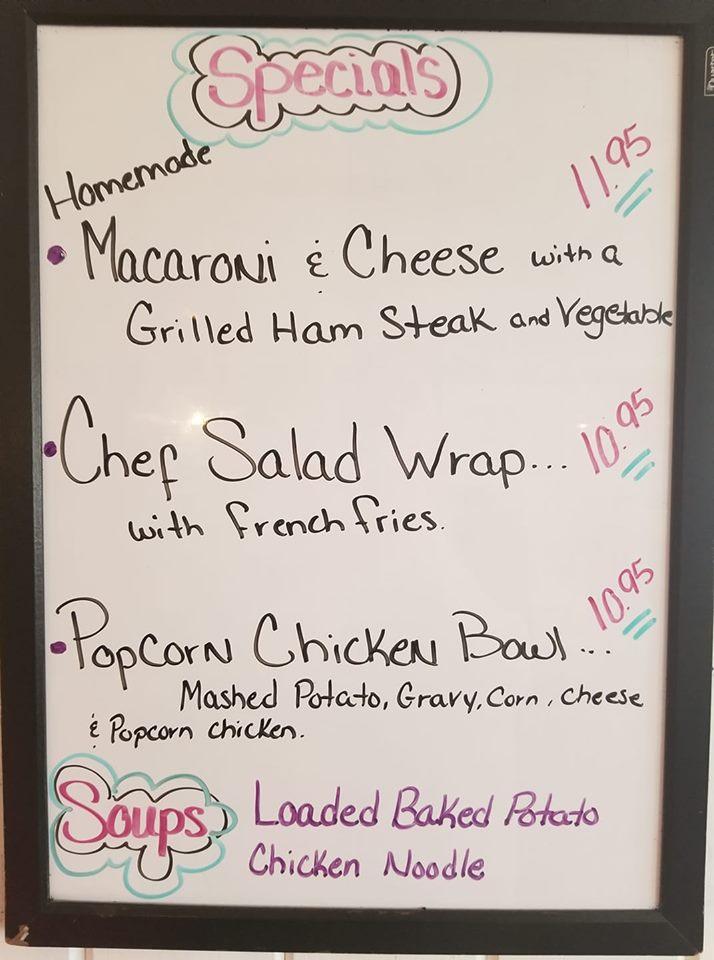 Specials
Homemade
11.95
Macaroni & Cheese with a
Grilled Ham Steak and Vegetable
Chef Salad Wrap... 10.95
with french fries.
10.95
Popcorn Chicken Bowl...
Mashed Potato, Gravy, Corn, cheese
& Popcorn chicken.
Soups Loaded Baked Potato
Chicken Noodle